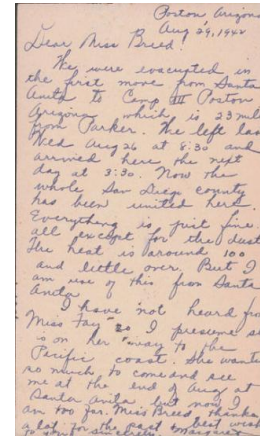 Poston, Arizona
Aug 29, 1942
Dear Miss Breed!
We were evacuated in
the first move from Santa
Anita to Camp III Poston
Arizona which is 23 mil
from Parker. We left las
Wed Aug 26 at 8:30 and
arrived here the next
day at 3:30. Now the
whole San Diego county
has been united here.
Everything is just fine
all except for the dust
The heat is around 100
and little over. But I
am use of this from Santa
Anita
I have not heard fro
Miss Fay so I preseme s
is on her way to the
Pacific coast. She wante
so much to come and see
me at the end of Aug at
Santa Anita but now I
am too far. Miss Breed thinks
a lot for the past best wish